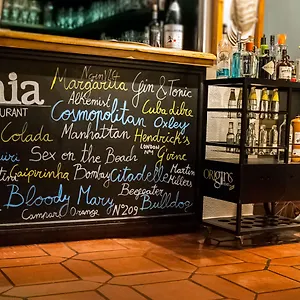 nia
URANT
Nginious
Margarita Gin & Tonic
Alkemist
Cosmopolitan Cuba libre
Oxley
Colada Manhattan Hendrick's
LONDON
Nº1
Sex on the Beach G'vine
Bombay Citadelle Martin
Millers
Caipirinha
Bloody Mary Beefeater Bulldog
Campari Orange Nº209
ORIGINS